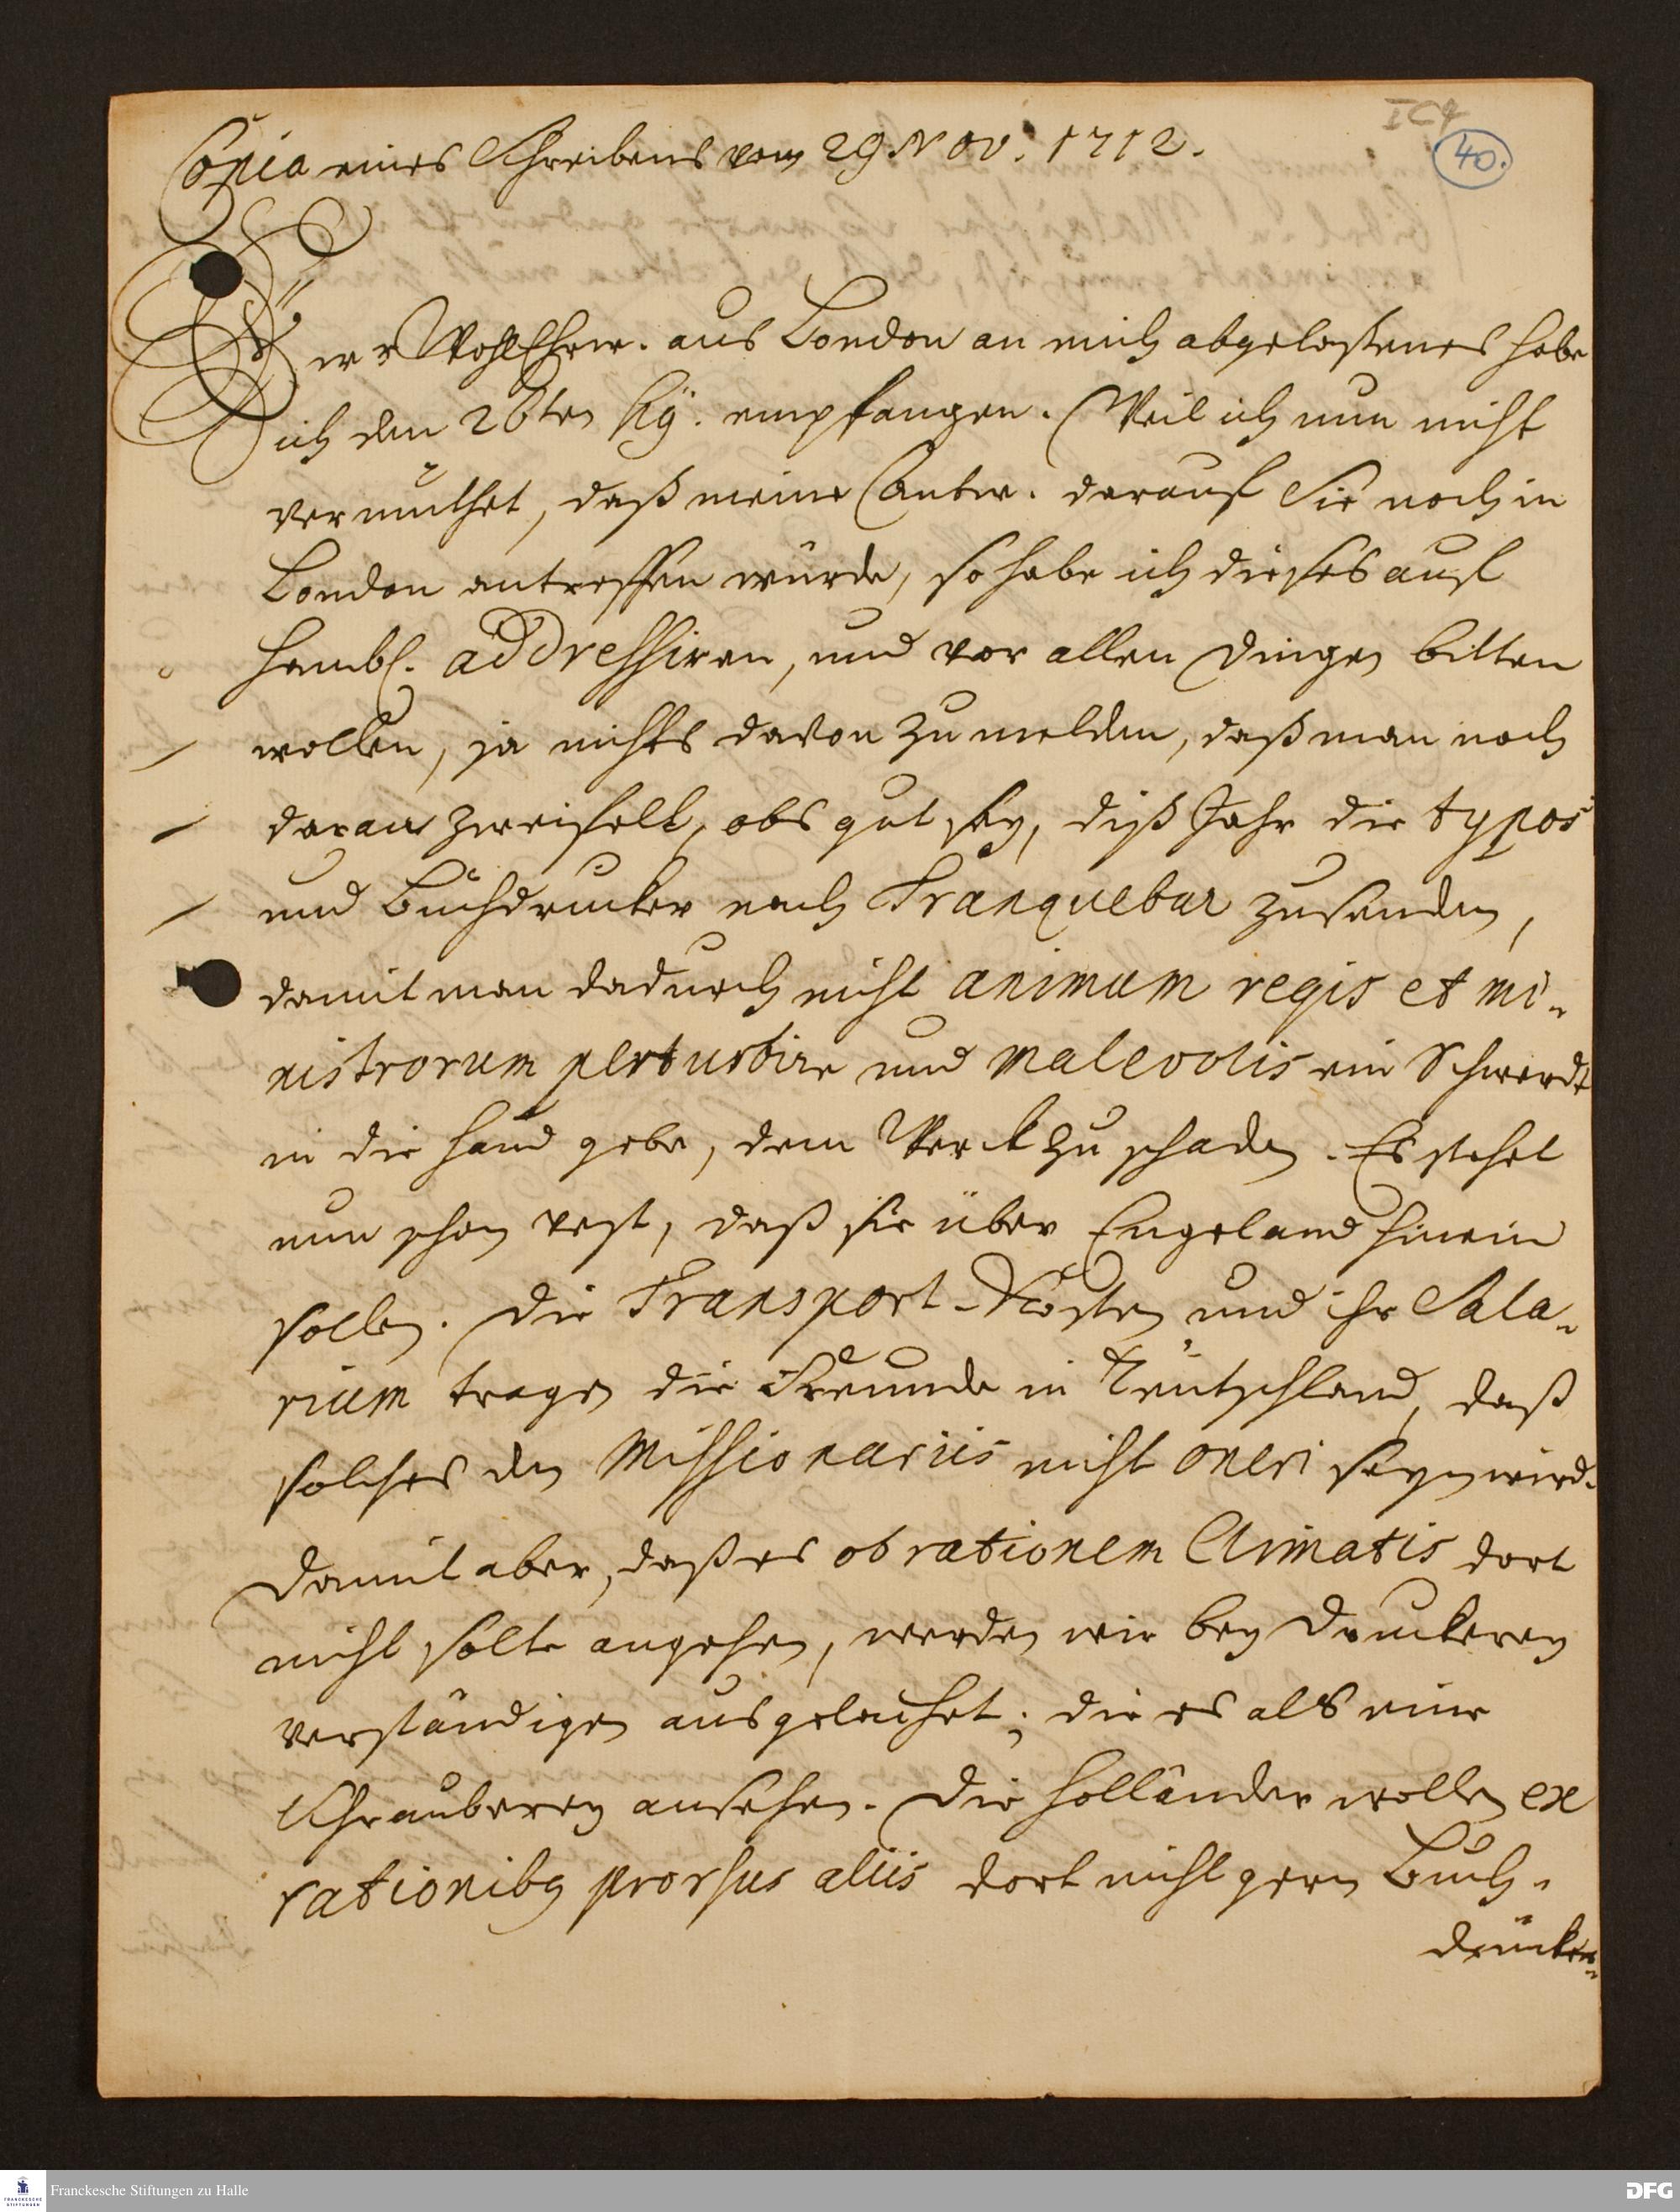 I C 4
40.
Copia eines Schreibens vom 29 Nov. 1712.
Ewr WohlEhrw. aus London an mich abgelaßenes habe
ich den 26ten hj. empfangen. Weil ich nun nicht
vermuthet, daß meine Antw. darauf Sie noch in
London antreffen würde, so habe ich dieses auf
Hamb. addressiren, und vor allen Dingen bitten
wollen, ja nichts davon zu melden, daß man noch
daran zweifelt, obs gut sey, diß Jahr die typos
und Buchdrucker nach Tranquebar zusenden,
damit man dadurch nicht animum regis et mi-
nistrorum perturbire und malevolis ein Schwerdt
in die Hand gebe, dem Werck zu schaden. Es stehet
nun schon vest, daß sie über Engeland hinein
sollen. Die Transport-Kosten und ihr Sala-
rium tragen die Freunde in Teutschland, daß
solches den Missionariis nicht oneri seyn wird.
Damit aber, daß es ob rationem Climatis dort
nicht solte angehen, werden wir bey Druckerey
verständigen ausgelachet; die es als eine
Schrauberey ansehen. Die Holländer wollen ex
rationibq prorsus aliis dort nicht gern Buch-
drucker-
Franckesche Stiftungen zu Halle
DFG